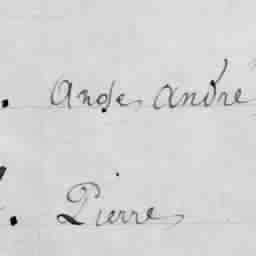 Ange André
Pierre